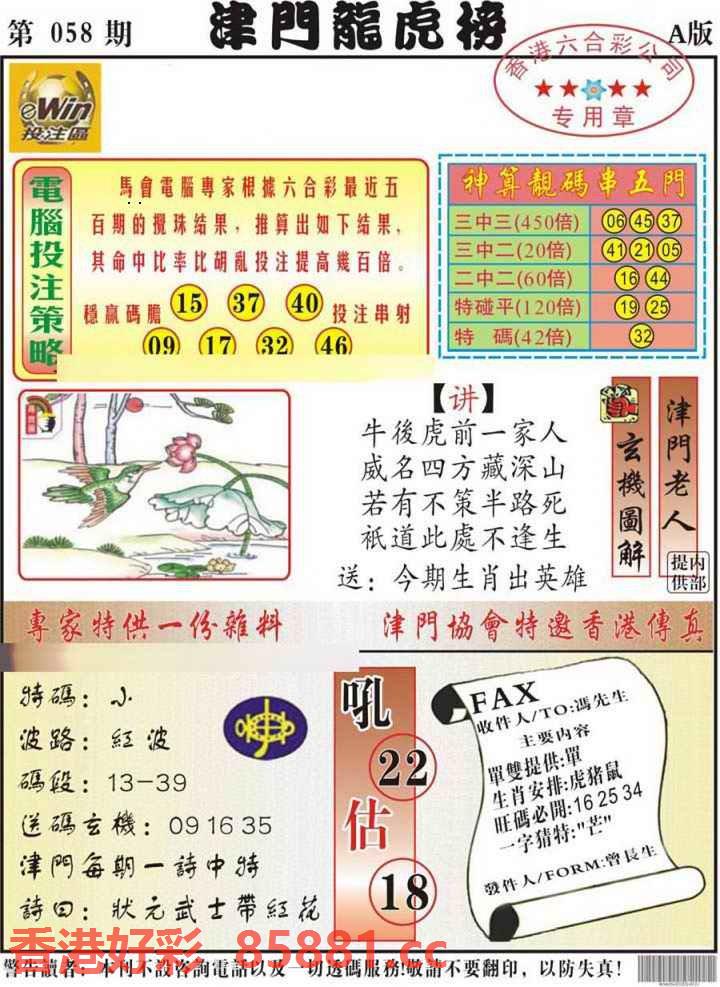 第 058 期
津門龍虎榜
A版
香港六合彩公司
★★★★
专用章
eWin
投注區
電腦投注策略
馬會電腦專家根據六合彩最近五
百期的攪珠結果，推算出如下結果，
其命中比率比胡亂投注提高幾百倍。
穩贏碼膽 15 37 40 投注串射
09 17 32 46
神算靚碼串五門
三中三(450倍) 06 45 37
三中二(20倍) 41 21 05
二中二(60倍) 16 44
特碰平(120倍) 19 25
特 碼(42倍) 32
【讲】
牛後虎前一家人
威名四方藏深山
若有不策半路死
祇道此處不逢生
送：今期生肖出英雄
玄機圖解
津門老人
内部提供
專家特供一份雜料
津門協會特邀香港傳真
特碼：小
波路：紅波
碼段：13-39
送碼玄機：09 16 35
津門每期一詩中特
詩曰：狀元武士帶紅花
吼
22
估
18
FAX
收件人/TO:馮先生
主要內容
單雙提供:單
生肖安排:虎猪鼠
旺碼必開:16 25 34
一字猜特:"芒"
發件人/FORM:曾長生
香港好彩 85881.cc
警告讀者：本刊不設咨詢電話以及一切透碼服務!敬請不要翻印，以防失真!